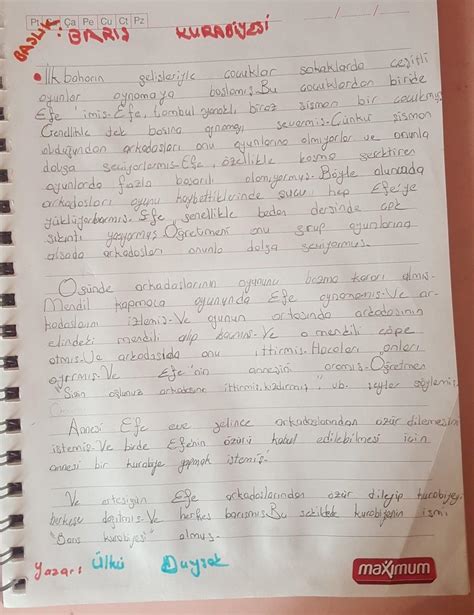 Pt Ça Pe Cu Ct Pz
BAŞLIK: BARIŞ KURABİYESİ
İlk baharın gelişleriyle çocuklar sokaklarda çeşitli
oyunlar oynamaya başlamış. Bu çocuklardan biride
Efe 'imiş. Efe, tombul yanaklı, biraz şişman bir çocukmuş
Genellikle tek başına oynamayı severmiş. Çünkü şişman
olduğundan arkadaşları onu oyunlarına almıyorlar ve onunla
dalga geçiyorlarmış. Efe, özellikle koşma gerektiren
oyunlarda fazla başarılı olamıyormuş. Böyle oluncada
arkadaşları oyunu kaybettiklerinde suçu hep Efe'ye
yüklüyorlarmış. Efe, genellikle beden dersinde çok
sıkıntı yaşıyormuş. Öğretmeni onu grup oyunlarına
alsada arkadaşları onunla dalga geçiyormuş.
O günde arkadaşlarının oyununu bozma kararı almış.
Mendil kapmaca oyununda Efe oynamamış. Ve ar-
kadaşlarını izlemiş. Ve oyunun ortasında arkadaşının
elindeki mendili alıp Ve o mendili çöpe
atmış. Ve arkadaşıda onu ittirmiş. Hocaları onları
ayırmış. Ve Efe 'nin annesini aramış. Öğretmen
"Sizin oğlunuz arkadaşını ittirmiş, kızdırmış" vb. şeyler söylemiş.
Annesi Efe eve gelince arkadaşlarından özür dilemesini
istemiş. Ve birde Efenin özürü kabul edilebilmesi için
annesi bir kurabiye yapmak istemiş.
Ve ertesigün Efe arkadaşlarından özür dileyip kurabiyeyi
herkese dağıtmış. Ve herkes barışmış. Bu şekilde kurabiyenin ismi
"Barış kurabiyesi" olmuş.
Yazarı Ülkü Duysak
maximum